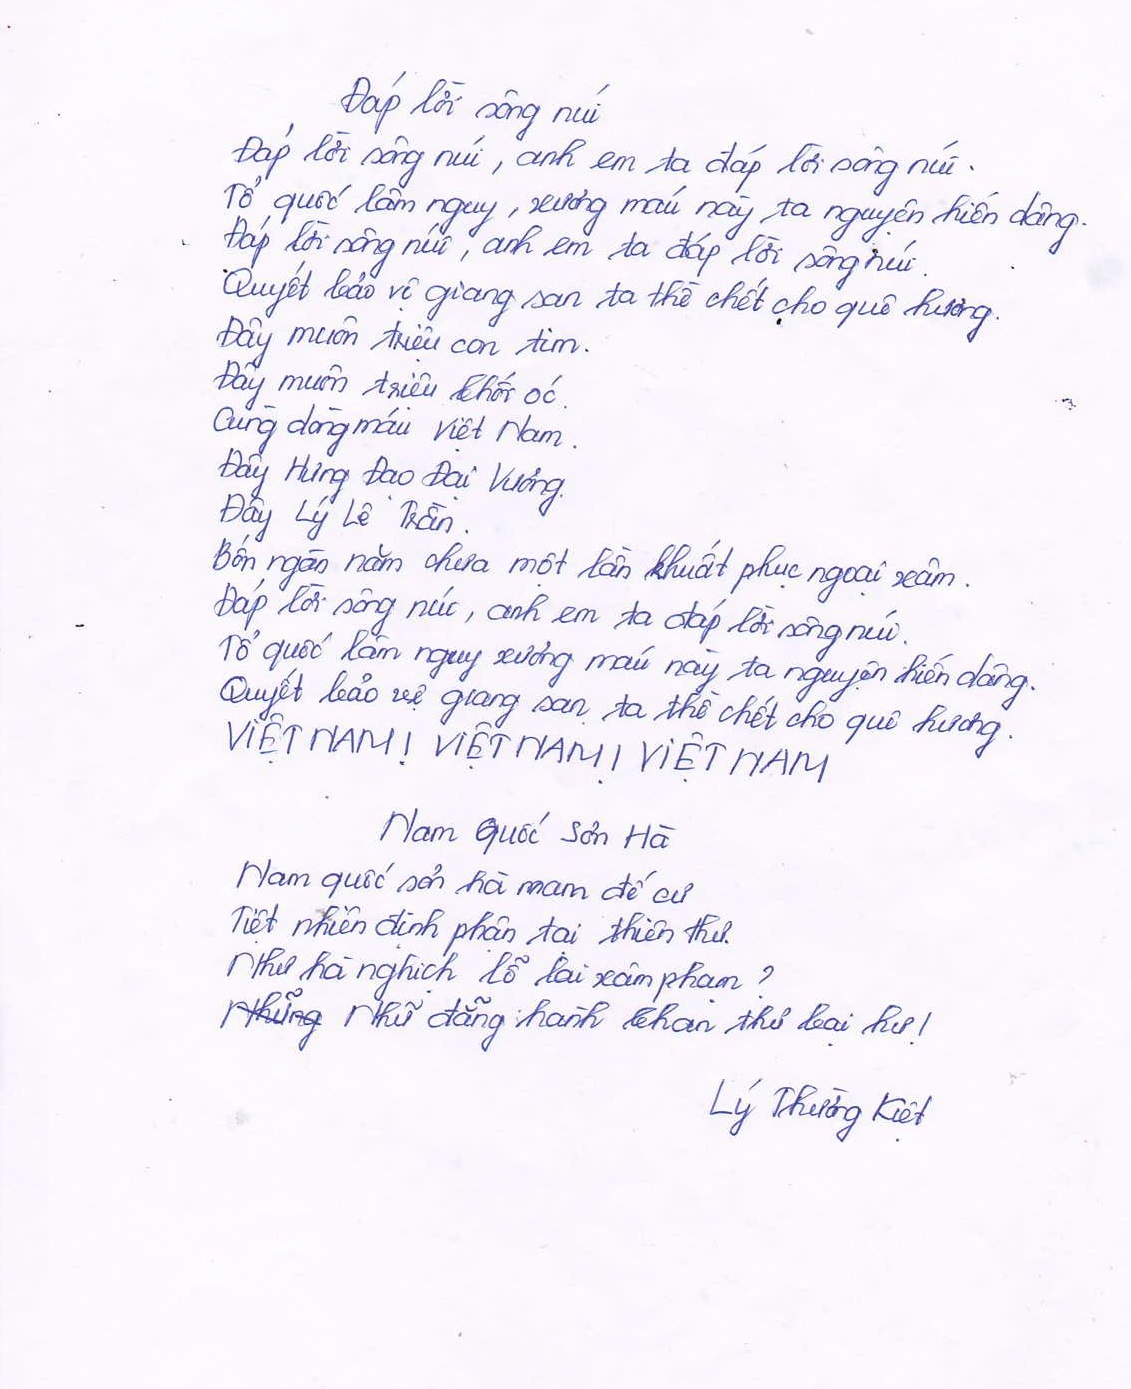 Đáp lời sông núi
Đáp lời sông núi, anh em ta đáp lời sông núi.
Tổ quốc lâm nguy, xương máu này ta nguyện hiến dâng.
Đáp lời sông núi, anh em ta đáp lời sông núi.
Quyết bảo vệ giang san ta thề chết cho quê hương.
Đây muôn triệu con tim.
Đây muôn triệu khối óc.
Cùng dòng máu Việt Nam.
Đây Hưng Đạo Đại Vương.
Đây Lý Lê Trần.
Bốn ngàn năm chưa một lần khuất phục ngoại xâm.
Đáp lời sông núi, anh em ta đáp lời sông núi.
Tổ quốc lâm nguy xương máu này ta nguyện hiến dâng.
Quyết bảo vệ giang san ta thề chết cho quê hương.
VIỆT NAM! VIỆT NAM! VIỆT NAM
Nam Quốc Sơn Hà
Nam quốc sơn hà nam đế cư
Tiệt nhiên định phận tại thiên thư.
Như hà nghịch lỗ lai xâm phạm?
Những Nhữ đẳng hành khan thủ bại hư!
Lý Thường Kiệt